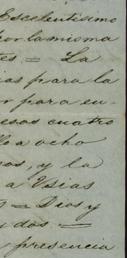 Escelentisimo
por la misma
tes = La
ias para la
r para en
esos cuatro
lo a ocho
sos, y la
a Usias
s = Dios y
udos =
presencia